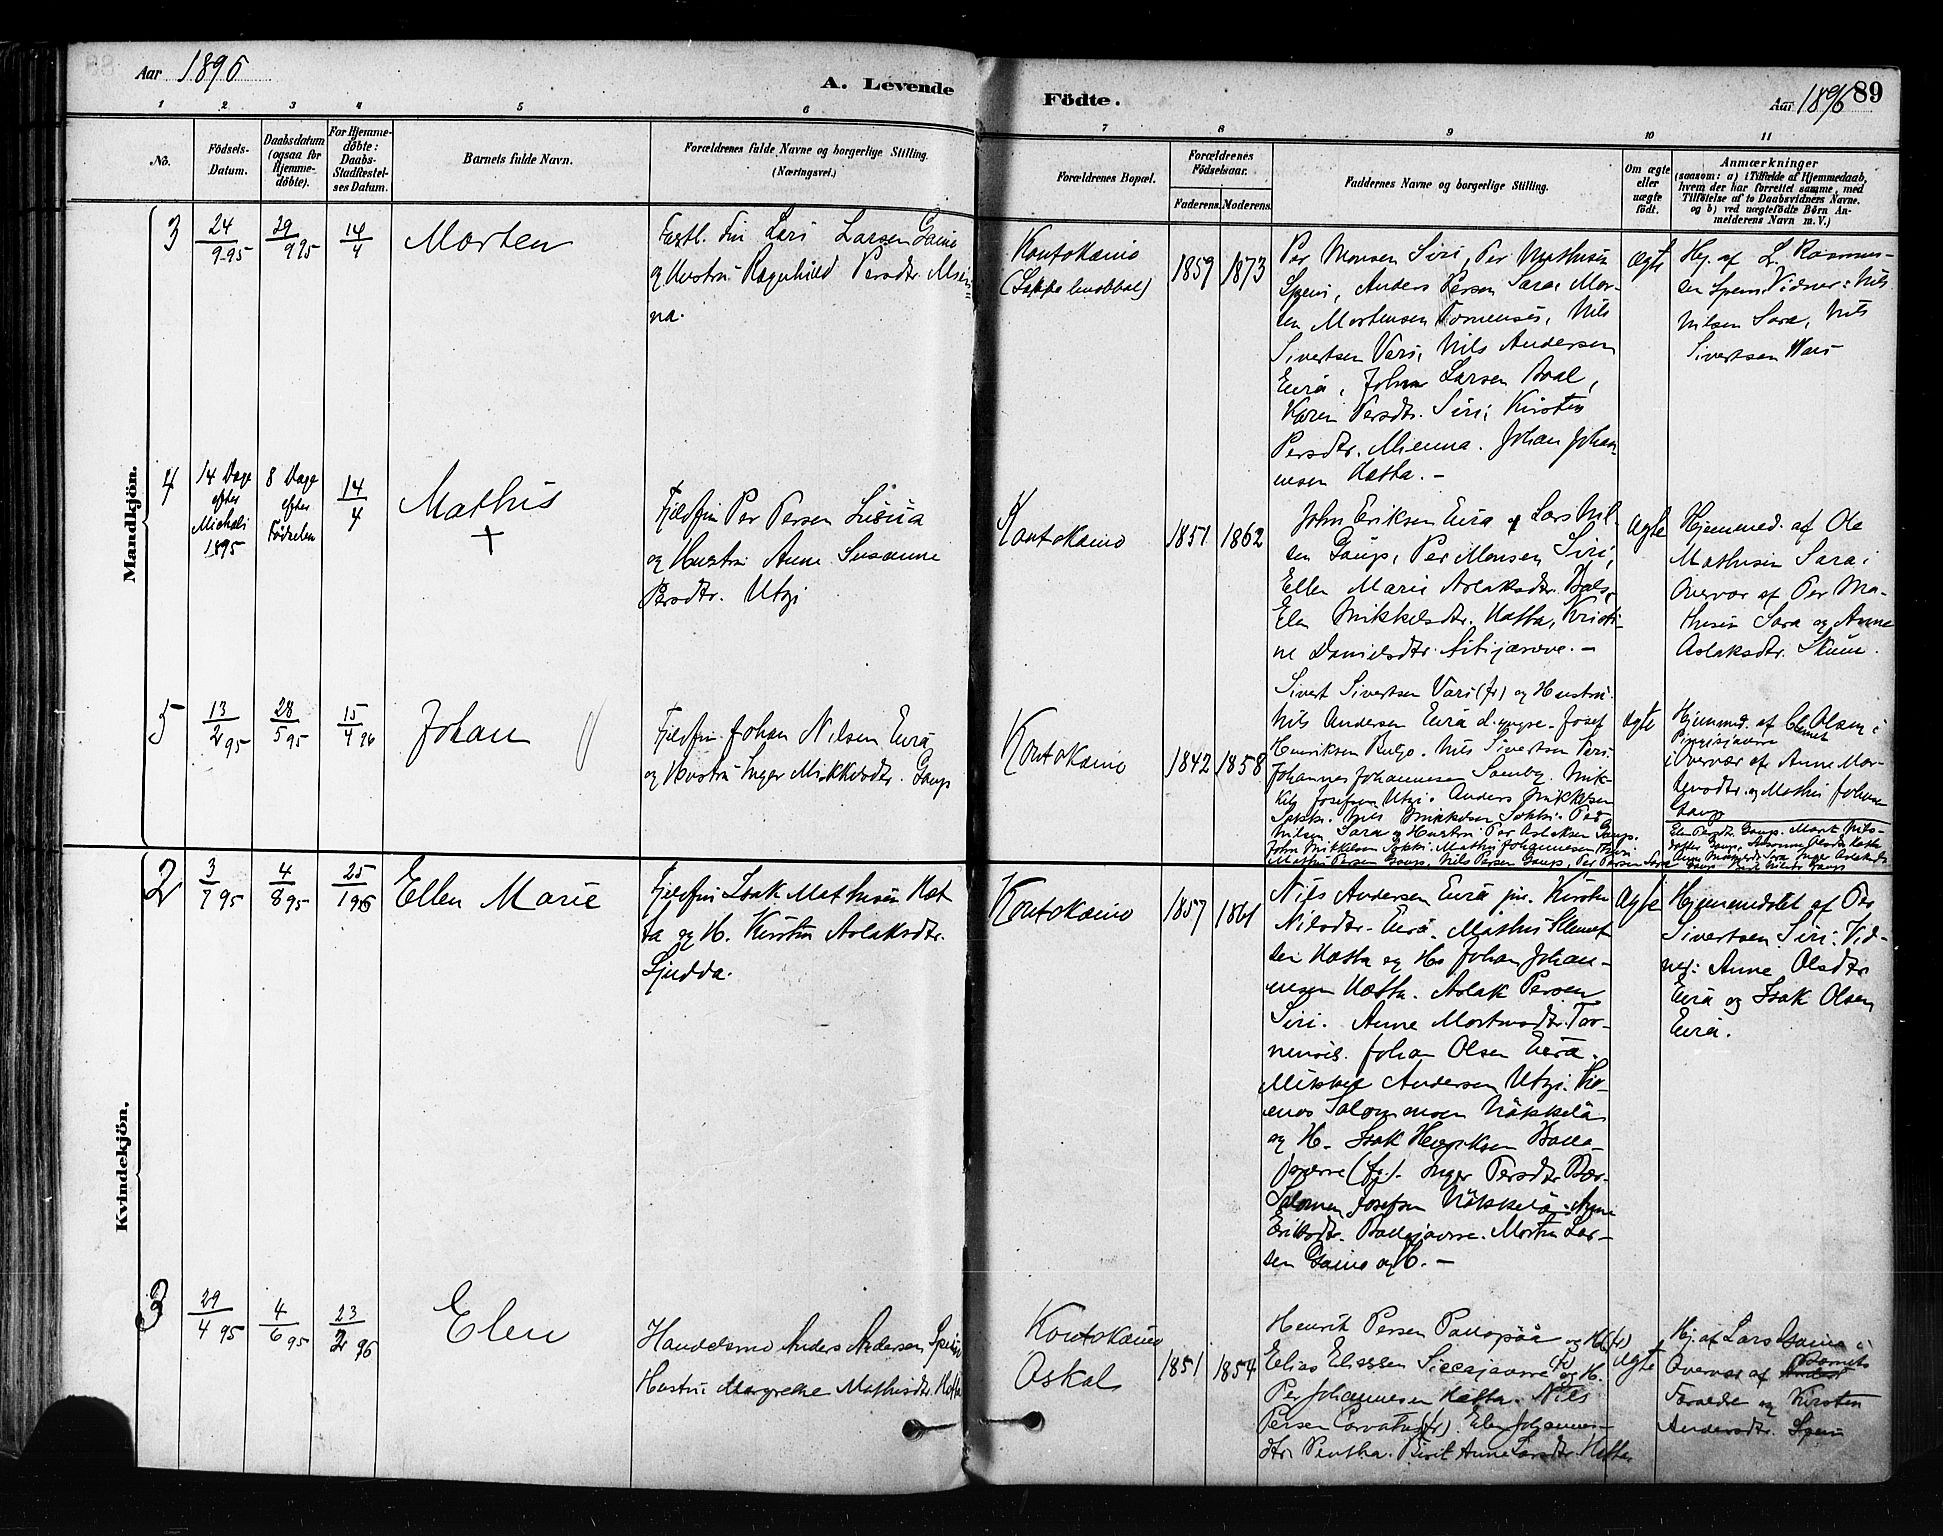 Aar 1896
A. Levende
Födte.
Aar 1896
89
1 2 3 4 5 6 7 8 9 10 11
No.
Födsels-
Datum.
Daabsdatum
(ogsaa for
Hjemme-
döbte).
For Hjemme-
döbte:
Daabs-
Stadfæstel-
ses Datum.
Barnets fulde Navn.
Forældrenes fulde Navne og borgerlige Stilling.
(Næringsvei.)
Forældrenes Bopæl.
Forældrenes
Födselsaar.
Faderens. Moderens.
Faddernes Navne og borgerlige Stilling.
Om ægte
eller
uægte
födt.
Anmærkninger
(saasom: a) i Tilfælde af Hjemmedaab,
hvem der har forrettet samme, med
Tilföielse af to Daabsvidners Navne.
og b) ved uægtefödte Börn An-
melderens Navn m. V.)
Mandkjön.
3
24/9 95
29/9 95
14/4
Morten
Fastl. Fin Lars Larsen Gaino
og Hustru Ragnhild Persdtr.
na.
Koutokæino
1859 1873
Per Monsen Siri, Per Mathisen
Spein, Anders Persen Sara, Mor-
ten Mortensen Tornensis, Nils
Sivertsen Vars, Nils Andersen
Eira, John Larsen Bval,
Karen Persdtr. Siri, Kirsten
Persdtr. Mienna. Johan Johan-
nsen Hætta. -
Ægte
Hj. af L. Rasmus-
sen Spein. Vidner: Nils
Nilsen Sara, Nils
Sivertsen Wars
4
14 Dage
efter
Michaeli
1895
8 Dage
efter
Födselen
14/4
Mathis
+
Fjeldfin Per Persen
og Hustru Anne Susanne
Persdtr. Utzi
Koutokæino
1851 1862
John Eriksen Eira og Lars Nil-
sen Gaup, Per Monsen Siri,
Ellen Marie Aslaksdtr. Bals,
Elen Mikkelsdtr. Hætta, Kristi-
ne Danielsdtr. Sitijærvve. -
Ægte
Hjemmed. af Ole
Mathisen Sara i
Overvær af Per Ma-
thisen Sara og Anne
Aslaksdtr. Skum.
5
13/2 95
28/5 95
15/4 96
Johan
Fjeldfin Johan Nilsen Eira
og Hustru Inger Mikkelsdtr. Gaup
Koutokæino
1842 1858
Sivert Sivertsen Vars (fr) og Hustru.
Nils Andersen Eira d. yngre. Josef
Henriksen Buljo. Nils Sivertsen Vars.
Johannes Johannesen Somby. Mik-
kel Josefsen Utzi. Anders Mikkelsen
Sokki. Nils Mikkelsen Sokki. Per
Nilsen Sara og Hustru. Per Aslaksen Gaup.
John Mikkelsen Sokki. Mathis Johannesen
Mathis Persen Gaup, Nils Persen Gaup, Per Persen Sara
Ægte
Hjemmed. af Clemet Olsen i
i Overvær af Anne Mor-
tensdtr. og Mathis Johnsen
Gaup
Elen Persdtr. Gaup. Marit Nils-
datter Gaup,
Kvindekjön.
2
3/7 95
4/8 95
25/1 96
Ellen Marie
Fjeldfin Isak Mathisen Hæt-
ta og H. Kirsten Aslaksdtr.
Ljudda.
Koutokæino
1857 1861
Nils Andersen Eira jun. Kirsten
Nilsdtr. Eira. Mathis Klemet-
sen Hætta og H. Johan Johan-
nesen Hætta. Aslak Persen
Siri. Anne Mortensdtr. Tor-
nensis. Johan Olsen Eira.
Mikkel Andersen Utzi. Tho-
mas Salomonsen Näkkelä
og H. Isak Henriksen
(fg). Inger Persdtr. Bær.
Salomon Josefsen Näkkelä. Anne
Eriksdtr. Morten Lar-
sen Gaino og H. -
Ægte
Hjemmedöbt af Per
Sivertsen Siri. Vid-
ner: Anne Olsdtr.
Eira og Isak Olsen
Eira.
3
29/4 95
4/6 95
23/2 96
Elen
Handelsmd Anders Andersen Spein
Hustru Margrethe Mathisdtr. Hætta
Koutokæino
Askal
1851 1854
Henrik Persen og H. (fr)
Elias Eliassen Siccajavrre (fr) og H.
Per Johannesen Hætta. Nils
Persen Elen Johannes-
dtr. Pentha. Berit Anne Larsdtr. Hætta
Ægte
Hj. af Lars Gaino i
Overvær af Barnets
Forældre og Kirsten
Andersdtr. Spein